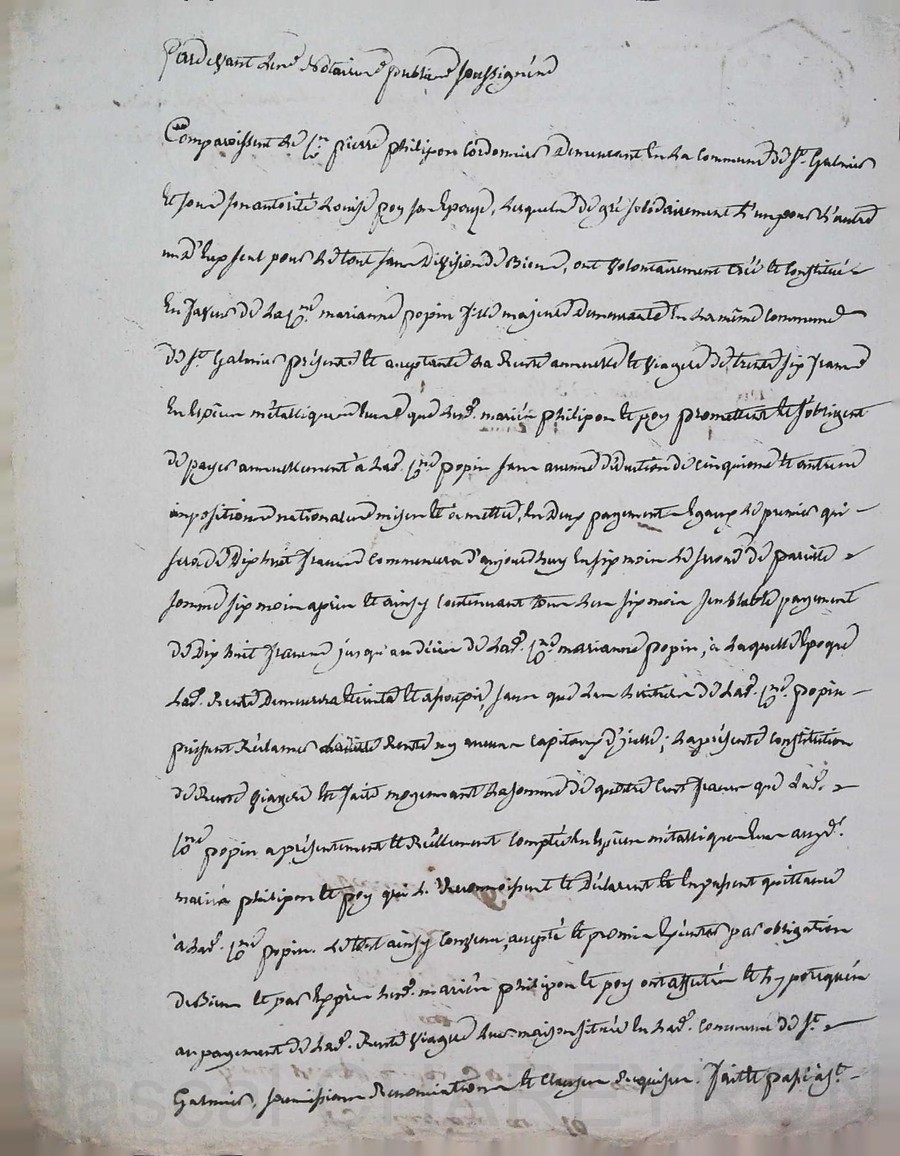 Pardevant les Notaires publics soussignés
Comparoissent le C.en pierre philipon Cordonnier Demeurant En La Commune de St. Galmier
Et sous son autorité Louise poy son Epouse, Lesquels de gré solidairement L'un pour L'autre
un d'Eux seul pour Le tout sans Division de Biens, ont volontairement créé et constitué
En faveur de La C.ne marianne popin fille majeure Demeurante En La même Commune
de St. Galmier présente et acceptante La Rente annuelle et viagere de trente six francs
En Espèces métalliques que Lesd. mariés philipon et poy promettent et s'obligent
de payer annuellement à Lad. C.ne popin sans aucune déduction de cinquieme et autres
impositions nationales mises et à mettre, En Deux payements Egaux Le premier qui
sera de Dix huit francs Commencera d'aujourdhuy En six mois Le second de pareille
somme six mois après et ainsy Continuant tous Les six mois semblable payement
de Dix huit francs jusqu'au décès de Lad. C.ne marianne popin, à Laquelle Epoque
Lad. Rente Demeurra Eteinte et assoupie, sans que Les héritiers de Lad. C.ne popin
puissent Réclamer Rente ny aucuns Capitaux d'icelle; La présente constitution
de Rente viagere Est faite moyennant La somme de quatre Cent francs que Lad.
C.ne popin a présentement et Réellement Comptée En Espèces métalliques auxd.
mariés philipon et poy qui Le Reconnoissent et Déclarent et En passent quittance
à Lad. C.ne popin. Le tout ainsy Convenu, accepté et promis Exécuter par obligation
de Biens et par Exprès Lesd. mariés philipon et poy ont affectés et hypotequés
au payement de Lad. Rente viagere Leur maison située En Lad. Commune de St.
Galmier, soumissions Renonciations et Clauses Requises. fait et passé à St.